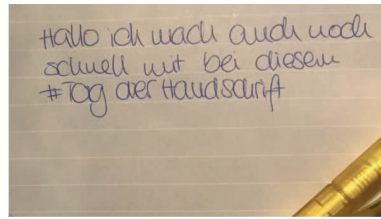 Hallo ich mach auch noch
schnell mit bei diesem
#Tag der Handschrift